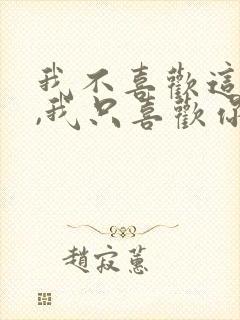 我不喜歡這
,我只喜歡你
趙寂蕙